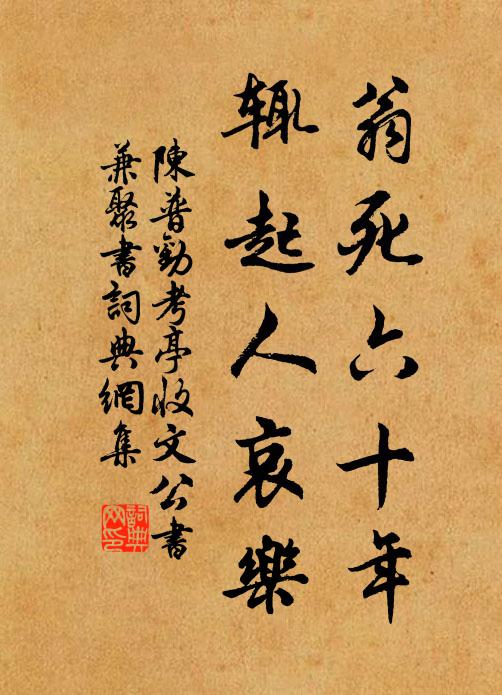 翁死六十年
輒起人哀樂
陳普勸考亭收文公書
兼聚書詞典網集
詞典网印